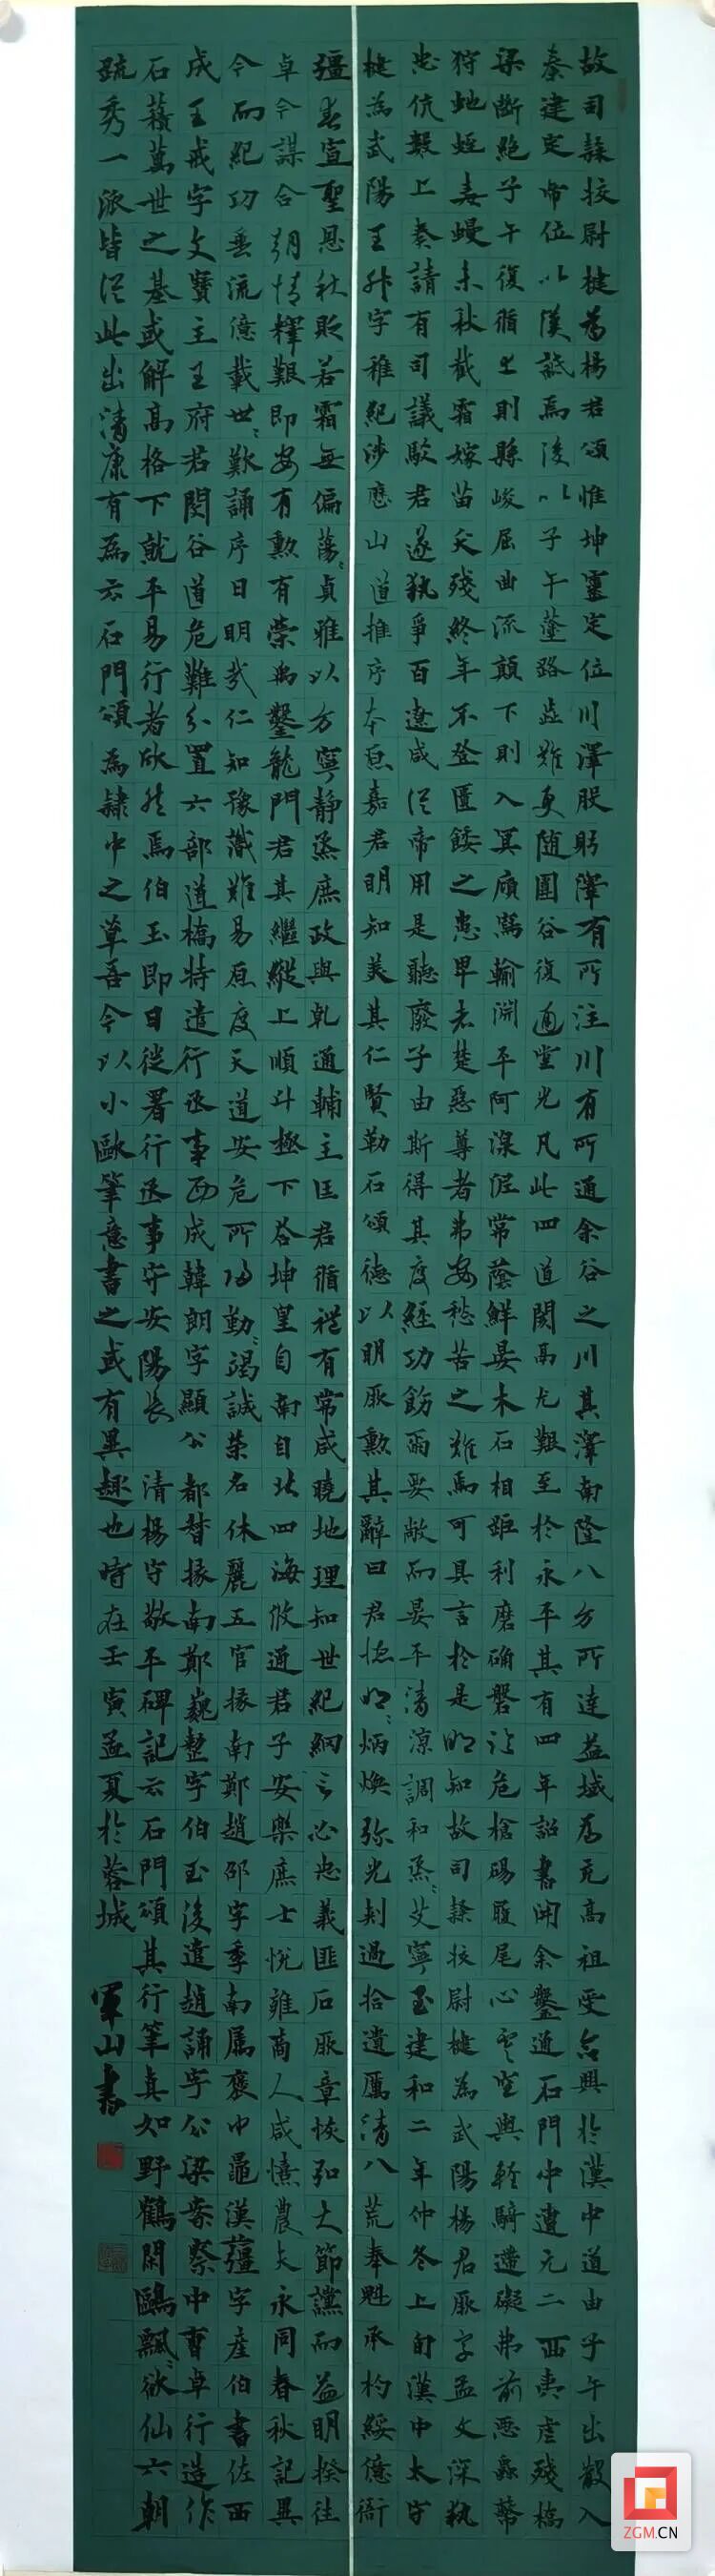 故司隸挍尉楗為楊君頌惟坤靈定位川澤股躬澤有所注川有所通余谷之川其澤南隆八方所達益域為充高祖受命興於漢中道由子午出散入
秦建定帝位以漢詆焉後以子午塗路歮難更隨圍谷復通堂光凡此四道閡鬲尤艱至於永平其有四年詔書開余鑿通石門中遭元二西夷虐殘橋
梁斷絕子午復循上則縣峻屈曲流顛下則入冥廎寫輸淵平阿湶泥常蔭鮮晏木石相距利磨确磐臨危槍碭履尾心寒空輿輕騎遰礙弗前惡蟲蔽
狩虵蛭毒蟃未秋截霜嫁苗夭殘終年不登匱餧之患卑者楚惡尊者弗安愁苦之難焉可具言於是明知故司隸挍尉楗為武陽楊君厥字孟文深執
忠伉數上奏請有司議駮君遂執爭百遼咸從帝用是聽廢子由斯得其度經功飭爾要敞而晏平清涼調和烝〻艾寧至建和二年仲冬上旬漢中太守
楗為武陽王升字稚紀涉歷山道推序本原嘉君明知美其仁賢勒石頌德以明厥勳其辭曰君德明〻炳煥弥光刺過拾遺厲清八荒奉魁承杓綏億衙
彊春宣聖恩秋貶若霜無偏蕩〻貞雅以方寧靜烝庶政與乾通輔主匡君循禮有常咸曉地理知世紀綱言必忠義匪石厥章恢弘大節讜而益明揆往
卓今謀合朝情釋艱即安有勳有榮禹鑿龍門君其繼縱上順斗極下荅坤皇自南自北四海攸通君子安樂庶士悅雍商人咸憘農夫永同春秋記異
今而紀功垂流億載世〻歎誦序曰明哉仁知豫識難易原度天道安危所歸勤〻竭誠榮名休麗五官掾南鄭趙邵字季南属褒中鼂漢彊字產伯書佐西
成王戒字文寶主王府君閔谷道危難分置六部道橋特遣行丞事西成韓朗字顯公都督掾南鄭巍整字伯玉後遣趙誦字公梁案察中曹卓行造作
石蓧萬世之基或解高格下就平易行者欣然焉伯玉即日徙署行丞事守安陽長 清楊守敬平碑記云石門頌其行筆真如野鶴閑鷗飄〻欲仙六朝
疏秀一派皆從此出清康有為云石門頌為隸中之草吾今以小歐筆意書之或有異趣也時在壬寅孟夏於蓉城 軍山書
ZGM.CN